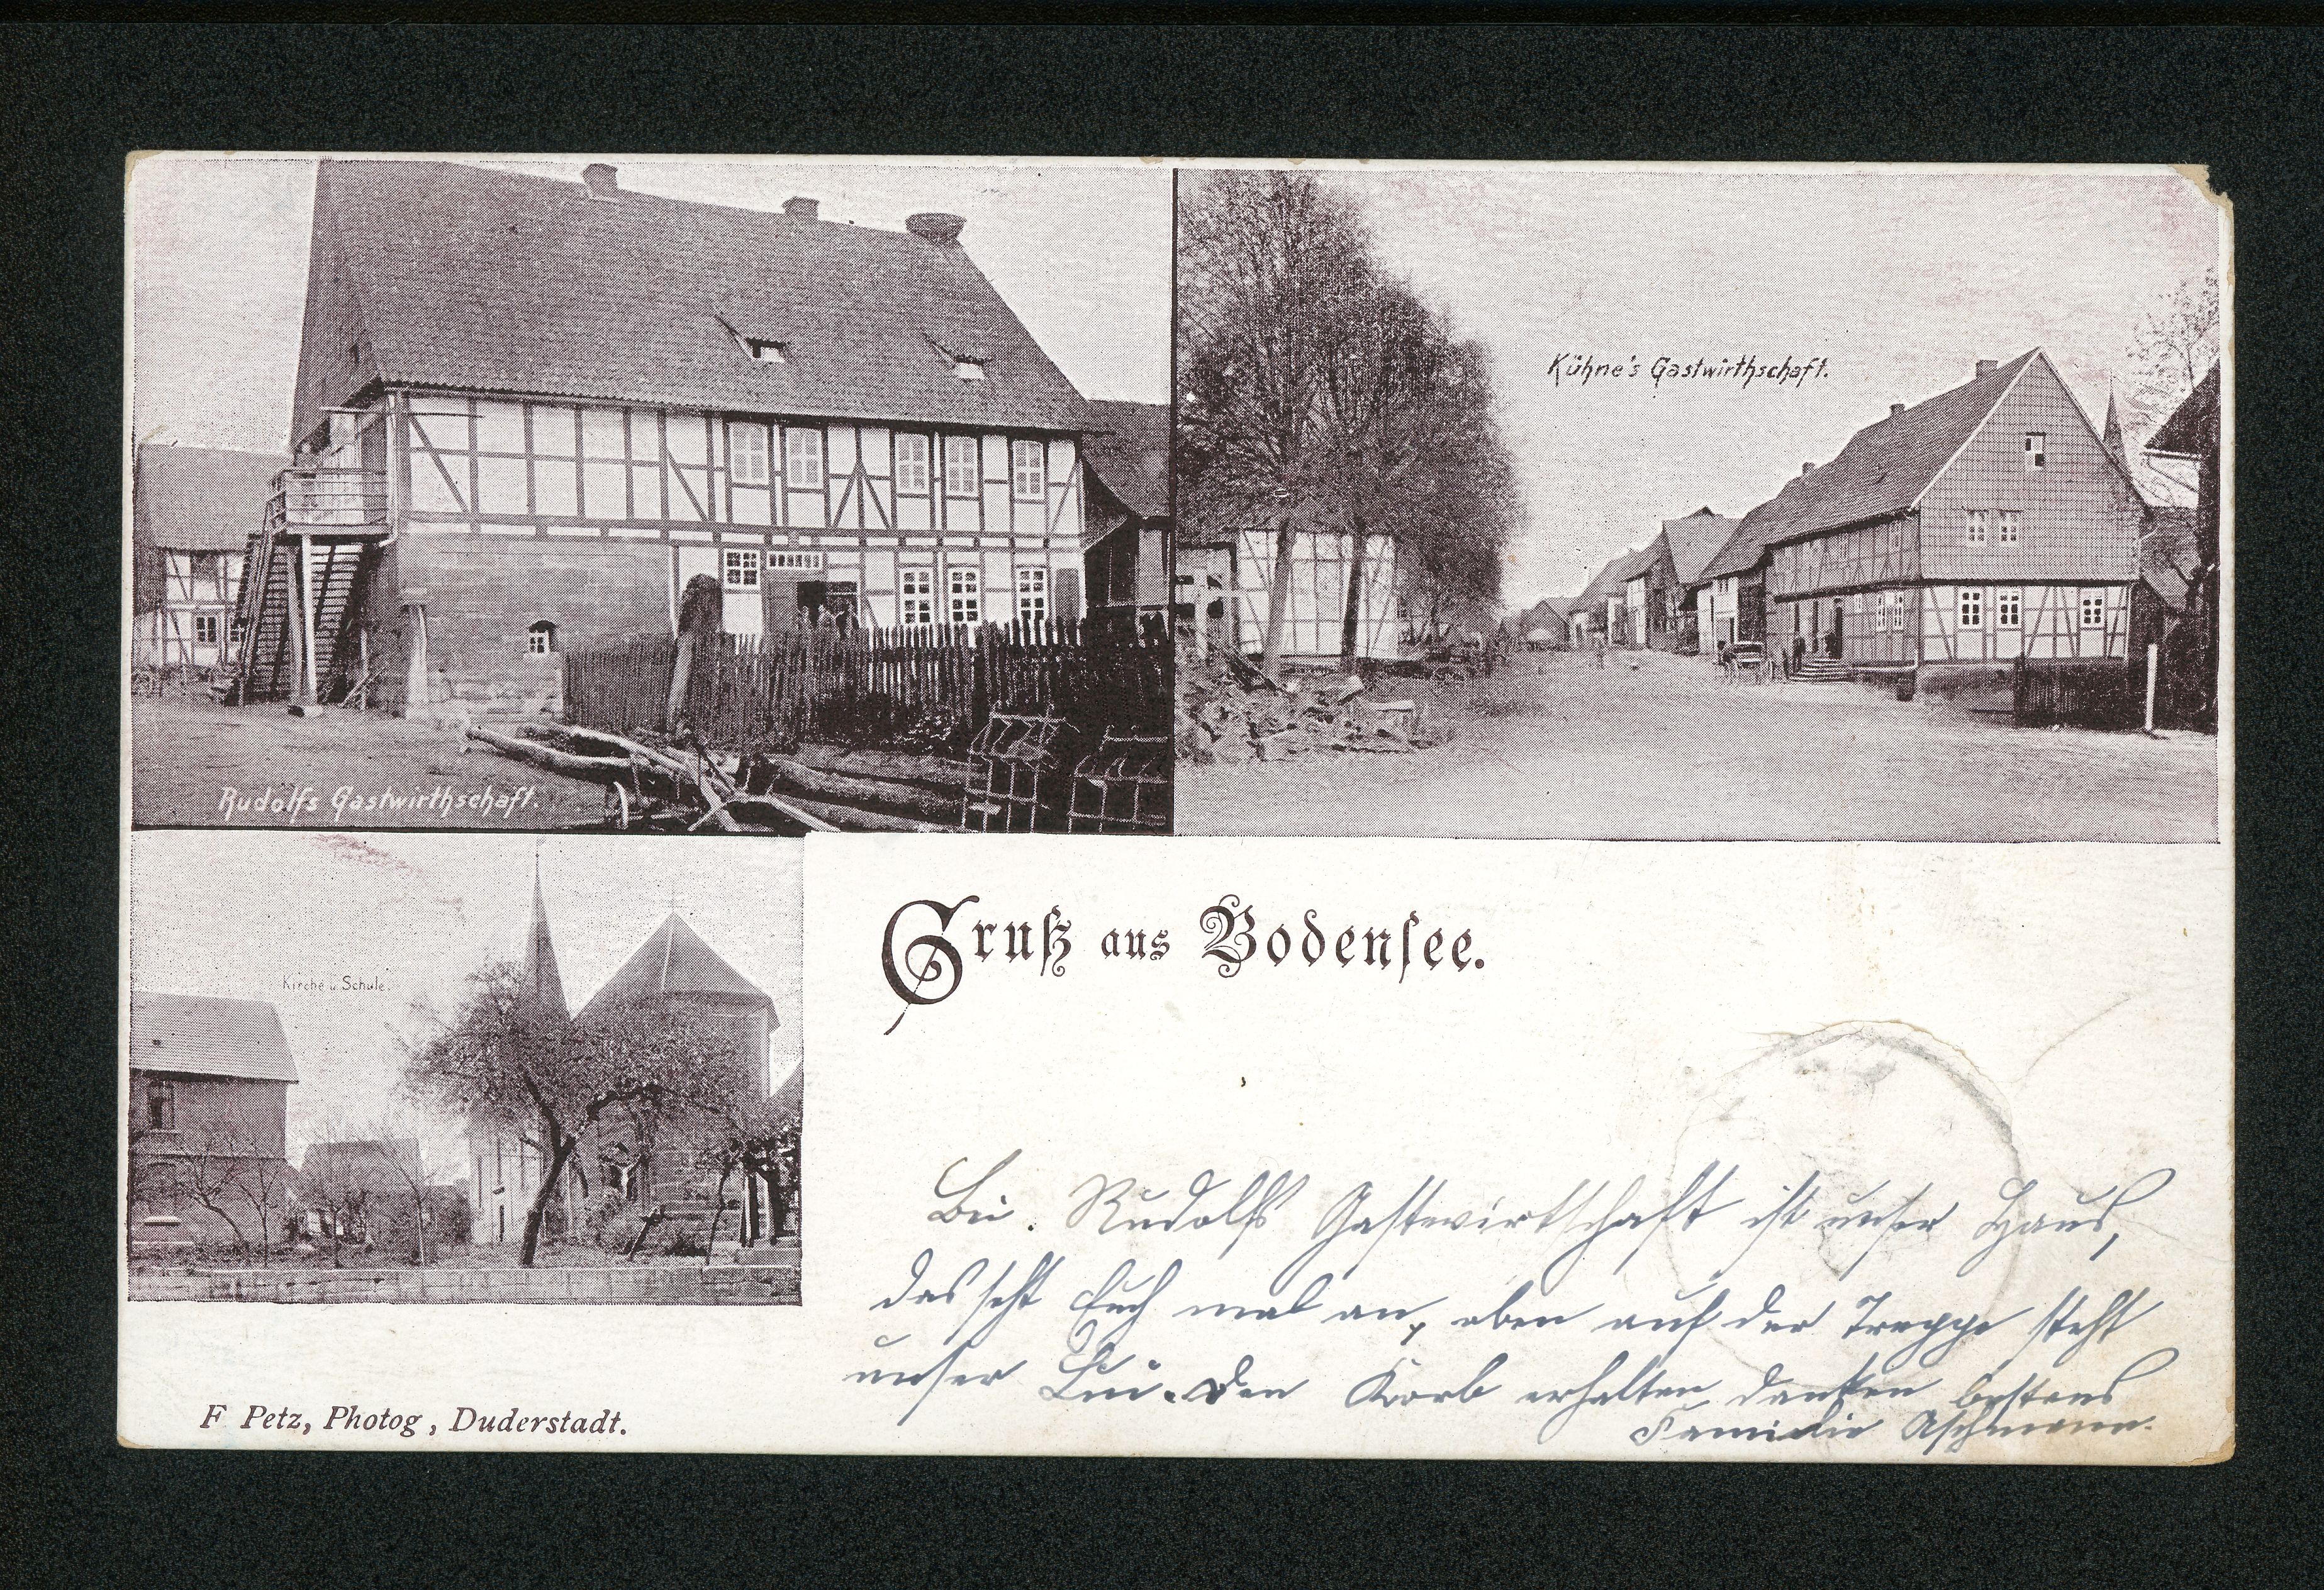 Rudolfs Gastwirthschaft.
Kühne's Gastwirthschaft.
Kirche u. Schule.
Gruß aus Bodensee.
Bei Rudolfs Gastwirtschaft ist unser Haus,
das seht Euch mal an, oben auf der Treppe steht
unser. Den Korb erhalten danken bestens
Familie Aschmann.
F Petz, Photog, Duderstadt.